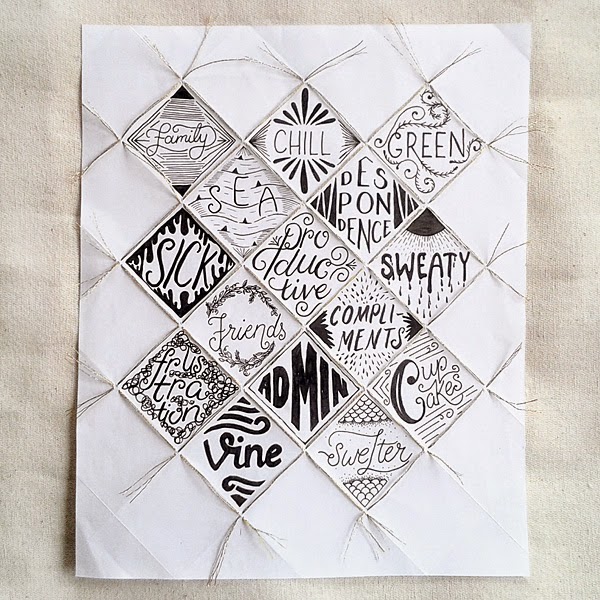 Family
CHILL
GREEN
SEA
DES
PON
DENCE
SICK
Pro
duc
tive
SWEATY
Friends
COMPLI-
MENTS
Frus
tra
tion
ADMIN
Cup
Cakes
Vine
Swelter